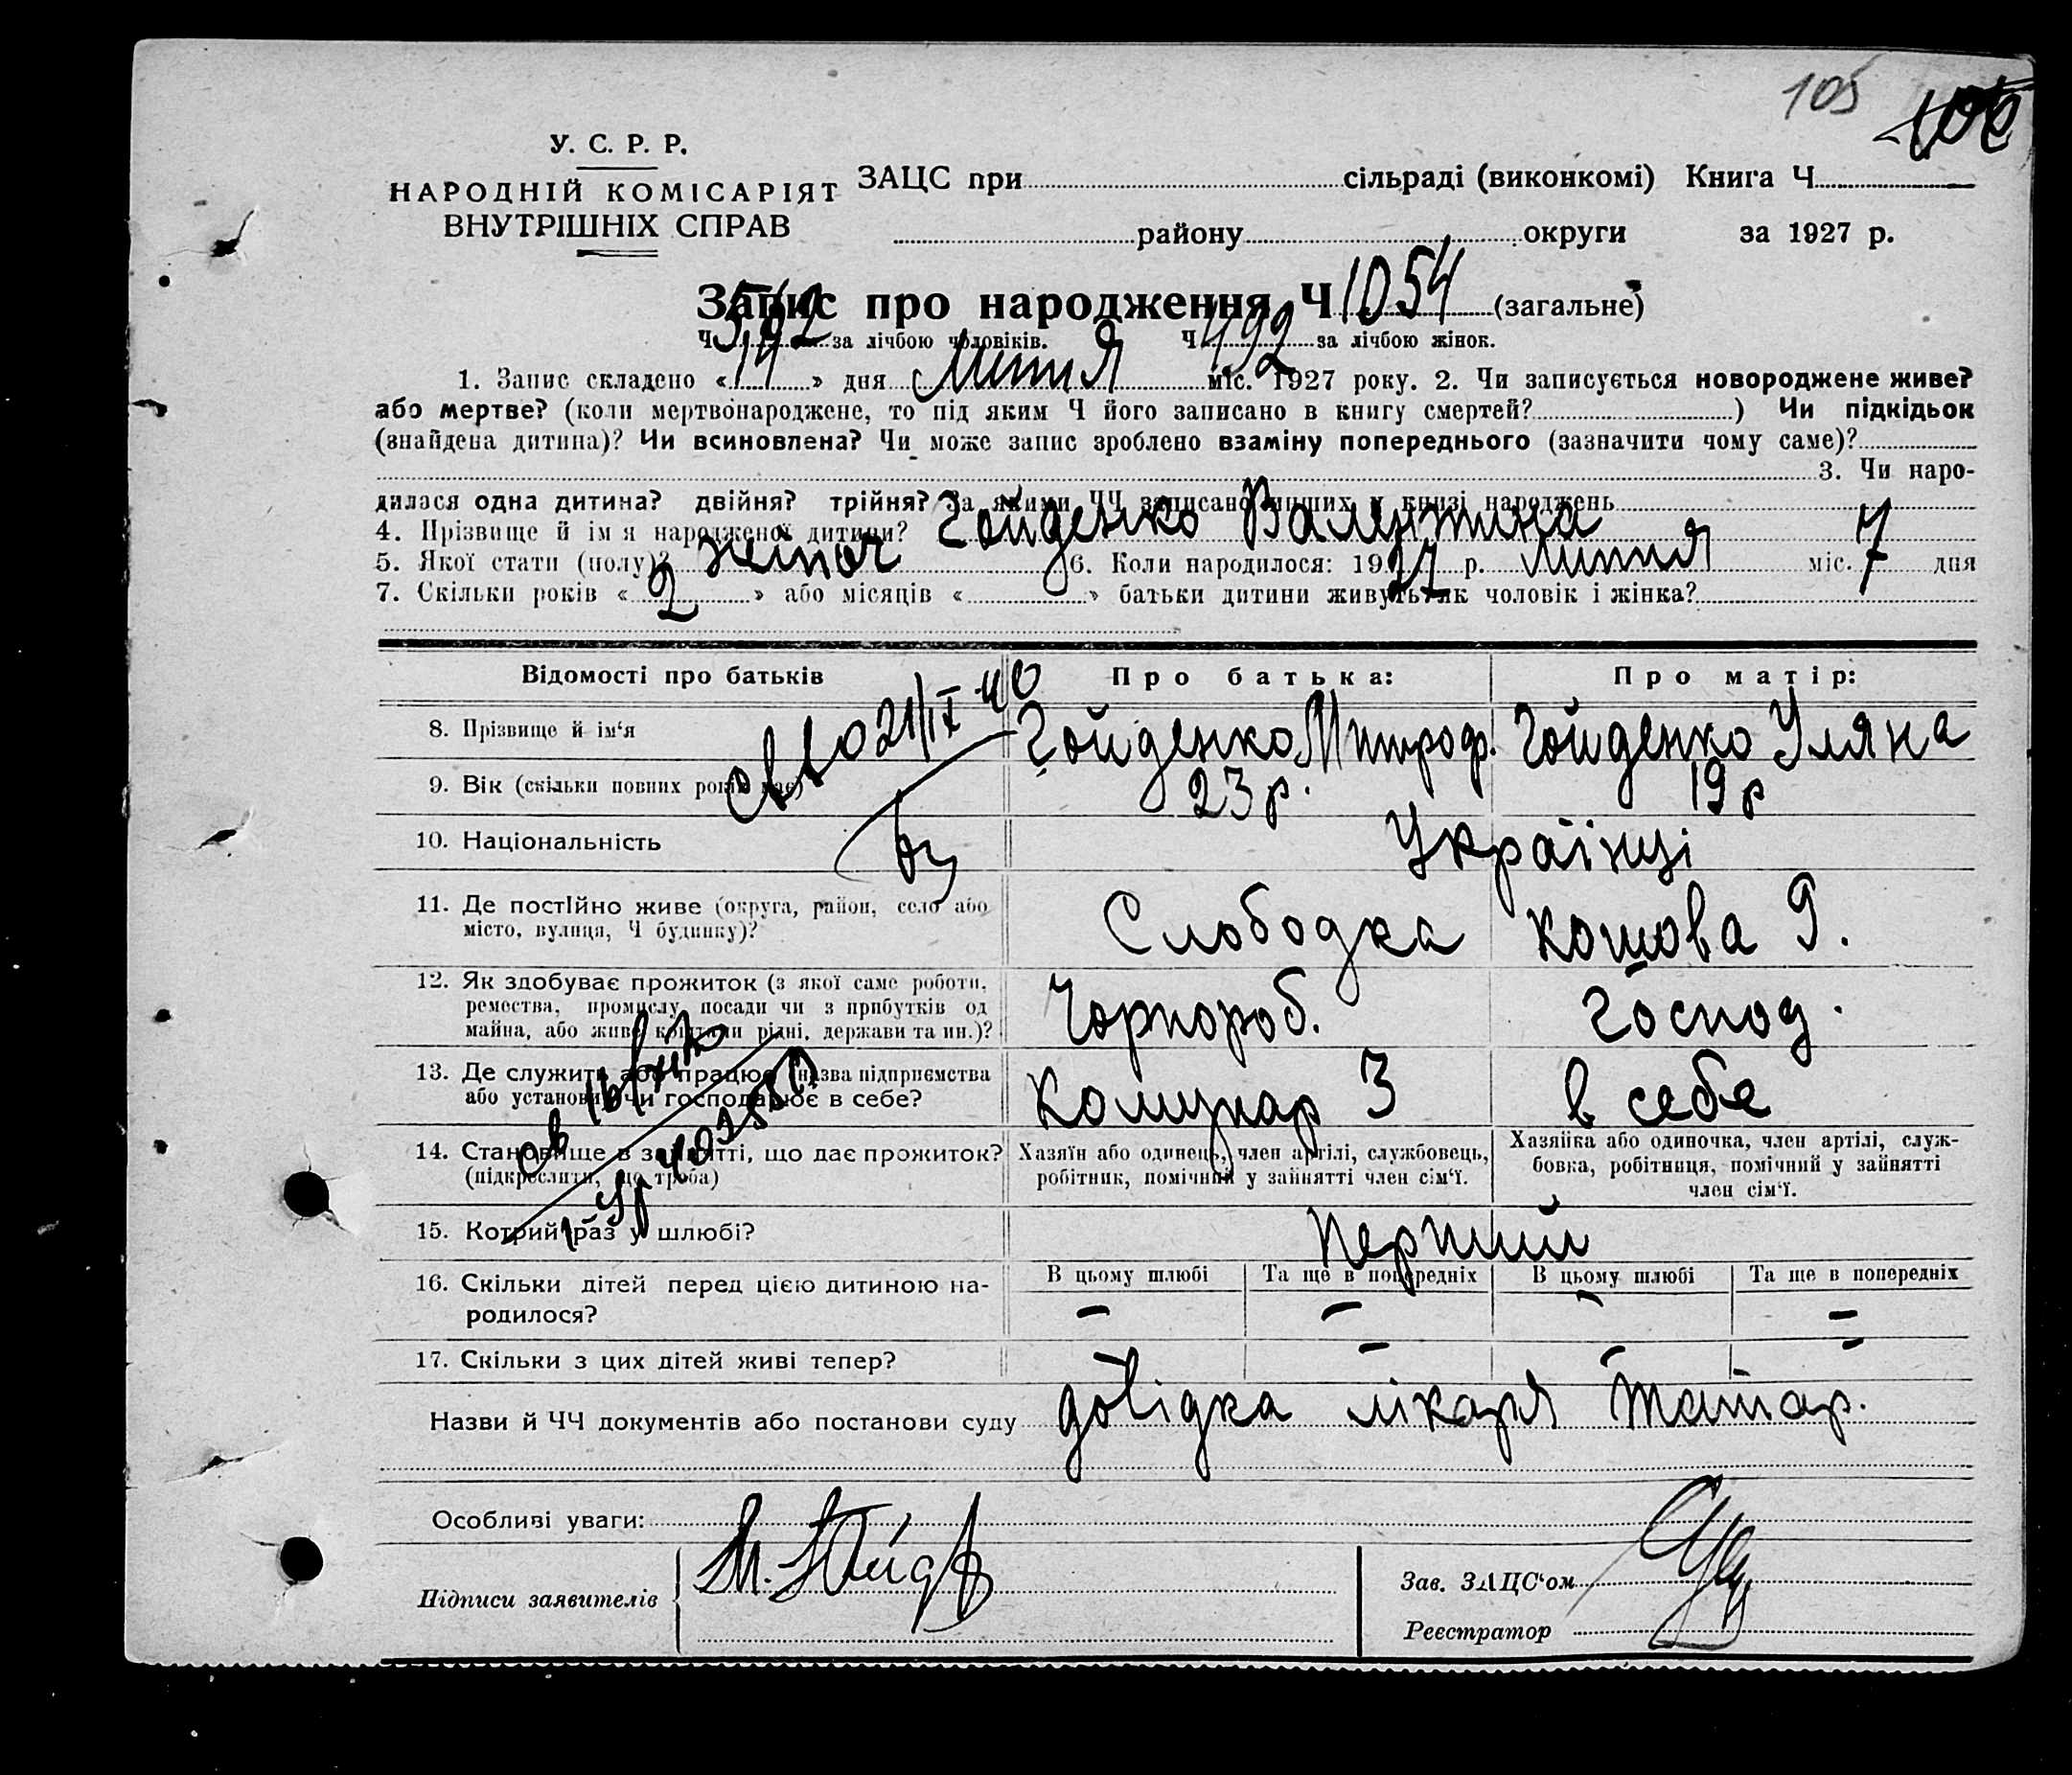 105
У. С. Р. Р.
НАРОДНІЙ КОМІСАРІЯТ
ВНУТРІШНІХ СПРАВ
ЗАЦС при сільраді (виконкомі) Книга Ч
району округи за 1927 р.
Запис про народження Ч 1054 (загальне)
Ч 592 за лічбою чоловіків. Ч 492 за лічбою жінок.
1. Запис складено «14» дня Липня міс. 1927 року. 2. Чи записується новороджене живе?
або мертве? (коли мертвонароджене, то під яким Ч його записано в книгу смертей? ) Чи підкідьок
(знайдена дитина)? Чи всиновлена? Чи може запис зроблено взаміну попереднього (зазначити чому саме)?
3. Чи наро-
дилася одна дитина? двійня? трійня? За якими ЧЧ записано инших у книзі народжень
4. Прізвище й ім я народженої дитини? Гойденко Валентина
5. Якої стати (полу)? жіноч 6. Коли народилося: 1927 р. Липня міс. 7 дня
7. Скільки років «2» або місяців « » батьки дитини живуть як чоловік і жінка?
Відомості про батьків Про батька: Про матір:
8. Прізвище й ім‘я Гойденко Митроф. Гойденко Уляна
21/IX 40
9. Вік (скільки повних років має) 23 р. 19 р
10. Національність Українці
11. Де постійно живе (округа, район, село або
місто, вулиця, Ч будинку)? Слободка Кошова 9.
12. Як здобуває прожиток (з якої саме роботи,
ремества, промислу, посади чи з прибутків од
майна, або живе коштами рідні, держави та ин.)? Чорнороб. Господ.
13. Де служить або працює (назва підприємства
або установи) чи господарює в себе? Комунар 3 в себе
14. Становище в зайнятті, що дає прожиток?
(підкреслити, що треба)
Хазяїн або одинець, член артілі, службовець,
робітник, помічний у зайнятті член сім‘ї.
Хазяйка або одиночка, член артілі, служ-
бовка, робітниця, помічний у зайнятті
член сім‘ї.
15. Котрий раз у шлюбі? Перший
16. Скільки дітей перед цією дитиною на-
родилося?
В цьому шлюбі Та ще в попередніх В цьому шлюбі Та ще в попередніх
– – – –
17. Скільки з цих дітей живі тепер? – – – –
Назви й ЧЧ документів або постанови суду довідка лікаря Татар.
Особливі уваги:
Підписи заявителів
Зав. ЗАЦС‘ом
Реєстратор